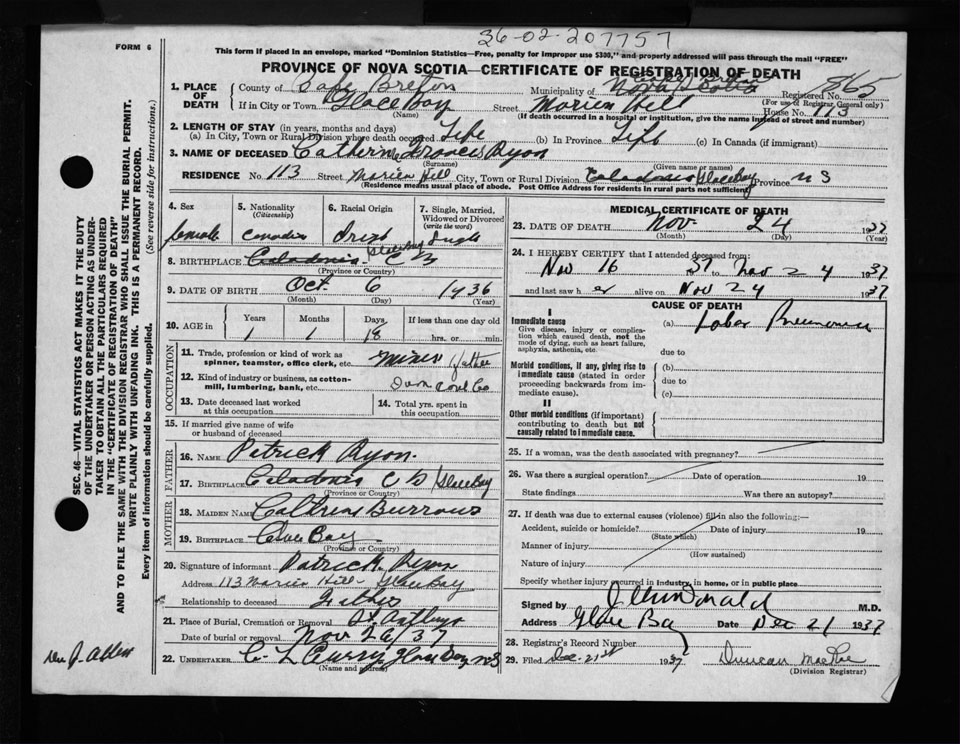 36-02-207757
FORM 6
This form if placed in an envelope, marked "Dominion Statistics—Free, penalty for improper use $300," and properly addressed will pass through the mail "FREE"
PROVINCE OF NOVA SCOTIA—CERTIFICATE OF REGISTRATION OF DEATH
1. PLACE OF DEATH
County of Cape Breton Municipality of Cape Breton Nova Scotia Registered No. 865
(For use of Registrar General only)
If in City or Town Glace Bay Street Marien Hill House No. 113
(Name) (If death occurred in a hospital or institution, give the name instead of street and number)
2. LENGTH OF STAY (in years, months and days)
(a) In City, Town or Rural Division where death occurred Life (b) In Province Life (c) In Canada (if immigrant)
3. NAME OF DECEASED Catherine Frances Ryon
(Surname) (Given name or names)
RESIDENCE No. 113 Street Marien Hill City, Town or Rural Division Caladonia Glace Bay Province N S
(Residence means usual place of abode. Post Office Address for residents in rural parts not sufficient)
4. Sex
female
5. Nationality (Citizenship)
Canadian
6. Racial Origin
Irish
7. Single, Married, Widowed or Divorced (write the word)
Single
8. BIRTHPLACE Caladonia Glace Bay C B
(Province or Country)
9. DATE OF BIRTH Oct 6 1936
(Month) (Day) (Year)
10. AGE in
Years Months Days If less than one day old
1 1 18 hrs. or min.
OCCUPATION
11. Trade, profession or kind of work as spinner, teamster, office clerk, etc. Miner father
12. Kind of industry or business, as cotton-mill, lumbering, bank, etc. Dom Coal Co
13. Date deceased last worked at this occupation
14. Total yrs. spent in this occupation
15. If married give name of wife or husband of deceased
FATHER
16. NAME Patrick Ryon.
17. BIRTHPLACE Caladonia C B Glace Bay
(Province or Country)
MOTHER
18. MAIDEN NAME Burrows
19. BIRTHPLACE Bay
(Province or Country)
20. Signature of informant Patrick Ryon
Address 113 Marien Hill Glace Bay
Relationship to deceased Father
21. Place of Burial, Cremation or Removal St
Date of burial or removal Nov 26/37
22. UNDERTAKER C L Curry Glace Bay NS
(Name and address)
MEDICAL CERTIFICATE OF DEATH
23. DATE OF DEATH Nov 24 1937
(Month) (Day) (Year)
24. I HEREBY CERTIFY that I attended deceased from:
Nov 16 37 Nov 24 1937
and last saw her alive on Nov 24 1937
CAUSE OF DEATH
I
Immediate cause (a) Lobar Pneumonia
Give disease, injury or complication which caused death, not the mode of dying, such as heart failure, asphyxia, asthenia, etc.
due to
Morbid conditions, if any, giving rise to immediate cause (stated in order proceeding backwards from immediate cause).
(b)
due to
(c)
II
Other morbid conditions (if important) contributing to death but not causally related to immediate cause.
25. If a woman, was the death associated with pregnancy?
26. Was there a surgical operation? Date of operation 19
State findings Was there an autopsy?
27. If death was due to external causes (violence) fill in also the following:—
Accident, suicide or homicide? Date of injury 19
(State which)
Manner of injury
(How sustained)
Nature of injury
Specify whether injury occurred in industry, in home, or in public place
Signed by M.D.
Address Glace Bay Date Dec 21 1937
28. Registrar's Record Number
29. Filed Dec. 21st 1937 Duncan
(Division Registrar)
SEC. 46—VITAL STATISTICS ACT MAKES IT THE DUTY OF THE UNDERTAKER OR PERSON ACTING AS UNDERTAKER TO OBTAIN ALL THE PARTICULARS REQUIRED IN THE "CERTIFICATE OF REGISTRATION OF DEATH" AND TO FILE THE SAME WITH THE DIVISION REGISTRAR WHO SHALL ISSUE THE BURIAL PERMIT.
WRITE PLAINLY WITH UNFADING INK. THIS IS A PERMANENT RECORD.
Every item of information should be carefully supplied. (See reverse side for instructions.)